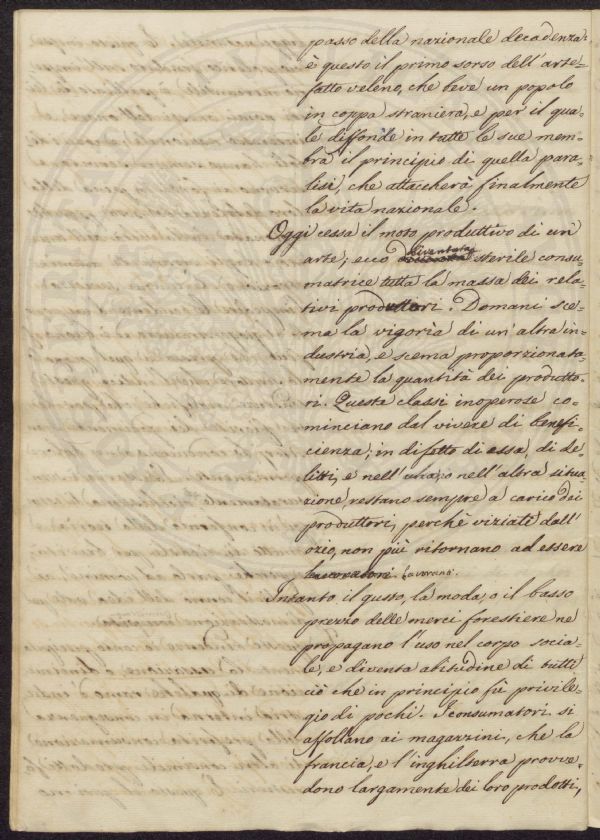 passo della nazionale decadenza:
è questo il primo sorso dell'arte-
fatto veleno, che beve un popolo
in coppa straniera, e per il qua-
le diffonde in tutte le sue mem-
bra il principio di quella para-
lisi, che attaccherà finalmente
la vita nazionale.
Oggi cessa il moto produttivo di un'
arte; ecco diventata sterile consu-
matrice tutta la massa dei rela-
tivi produttori. Domani sce-
ma la vigoria di un'altra in-
dustria, e scema proporzionata-
mente la quantità dei produtto-
ri. Queste classi inoperose co-
minciano dal vivere di benefi-
cienza; in difetto di essa, di de-
litti, e nell'una, o nell'altra situa-
zione, restano sempre a carico dei
produttori, perchè viziati dall'
ozio, non più ritornano ad essere
lavoratori.
Intanto il gusto, la moda, o il basso
prezzo delle merci forestiere ne
propagano l'uso nel corpo socia-
le, e diventa abitudine di tutti
ciò che in principio fù privile-
gio di pochi. I consumatori si
affollano ai magazzini, che la
francia, e l'inghilterra provve-
dono largamente dei loro prodotti,